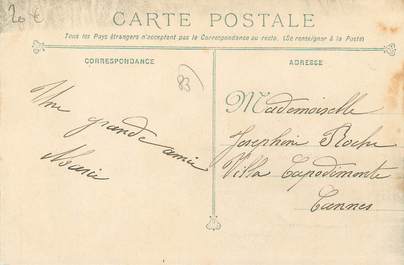 20 €
CARTE POSTALE
Tous les Pays étrangers n'acceptent pas la Correspondance au recto. (Se renseigner à la Poste)
CORRESPONDANCE
ADRESSE
83
Une grande amie
Marie
Mademoiselle
Josephine Roche
Villa Capodimonte
Cannes